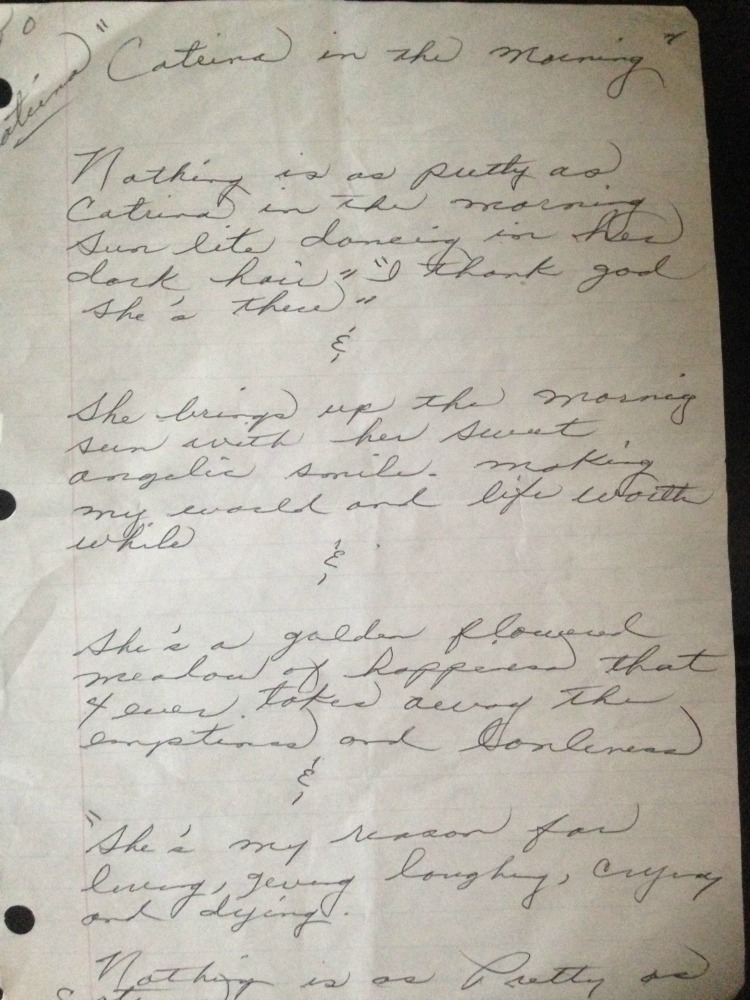 "Catrina in the Morning"
Nothing is as pretty as
Catrina in the morning
Sun lite dancing in her
dark hair," "I thank god
she's there"
&
She brings up the mornig
sun with her sweet
angelic smile. making
my world and life worth
while
&
She's a golden flowered
meadow of happiness that
4 ever takes away the
emptiness and lonliness
&
"She's my reason for
living, giving laughing, crying
and dying.
Nothing is as Pretty as